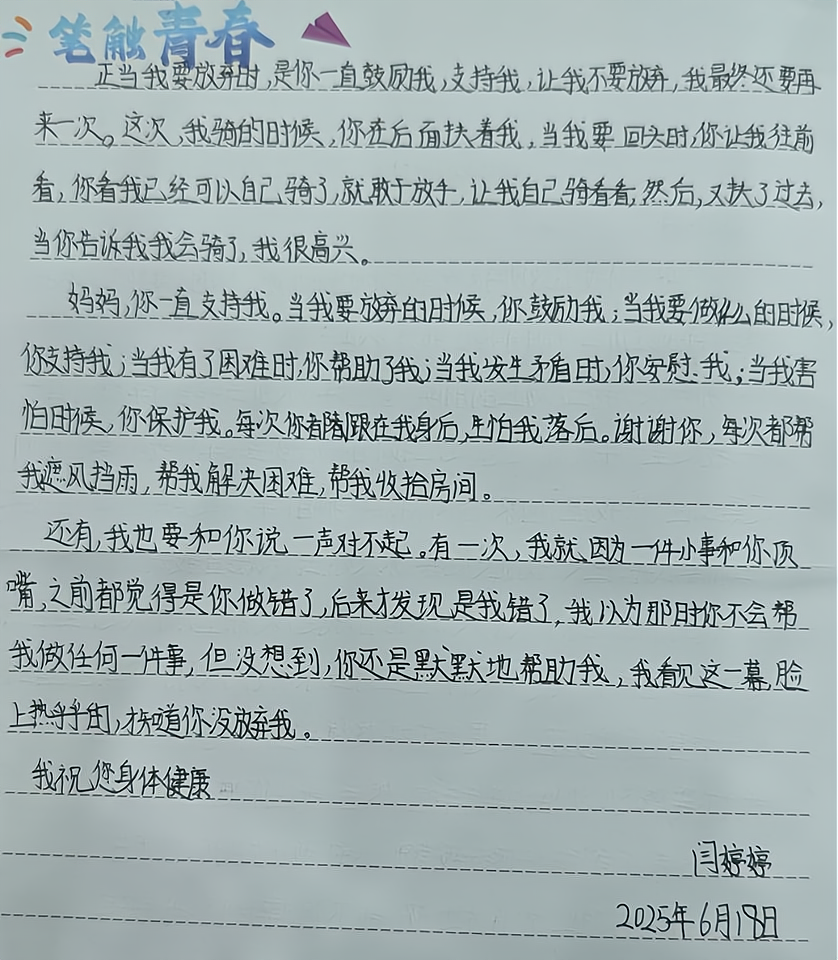 笔触青春
正当我要放弃时,是你一直鼓励我,支持我,让我不要放弃,我最终还要再
来一次。这次,我骑的时候,你在后面扶着我,当我要回头时,你让我往前
看,你看我已经可以自己骑了,就敢于放手,让我自己骑看看,然后,又扶了过去,
当你告诉我我会骑了,我很高兴。
妈妈,你一直支持我。当我要放弃的时候,你鼓励我;当我要做什么的时候,
你支持我;当我有了困难时,你帮助了我;当我发生矛盾时,你安慰我;当我害
怕时候,你保护我。每次你都跟在我身后,生怕我落后。谢谢你,每次都帮
我遮风挡雨,帮我解决困难,帮我收拾房间。
还有,我也要和你说一声对不起。有一次,我就因为一件小事和你顶
嘴,之前都觉得是你做错了,后来才发现是我错了,我以为那时你不会帮
我做任何一件事,但没想到,你还是默默地帮助我,我看见这一幕,脸
上热乎乎的,才知道你没放弃我。
我祝您身体健康
闫婷婷
2025年6月18日